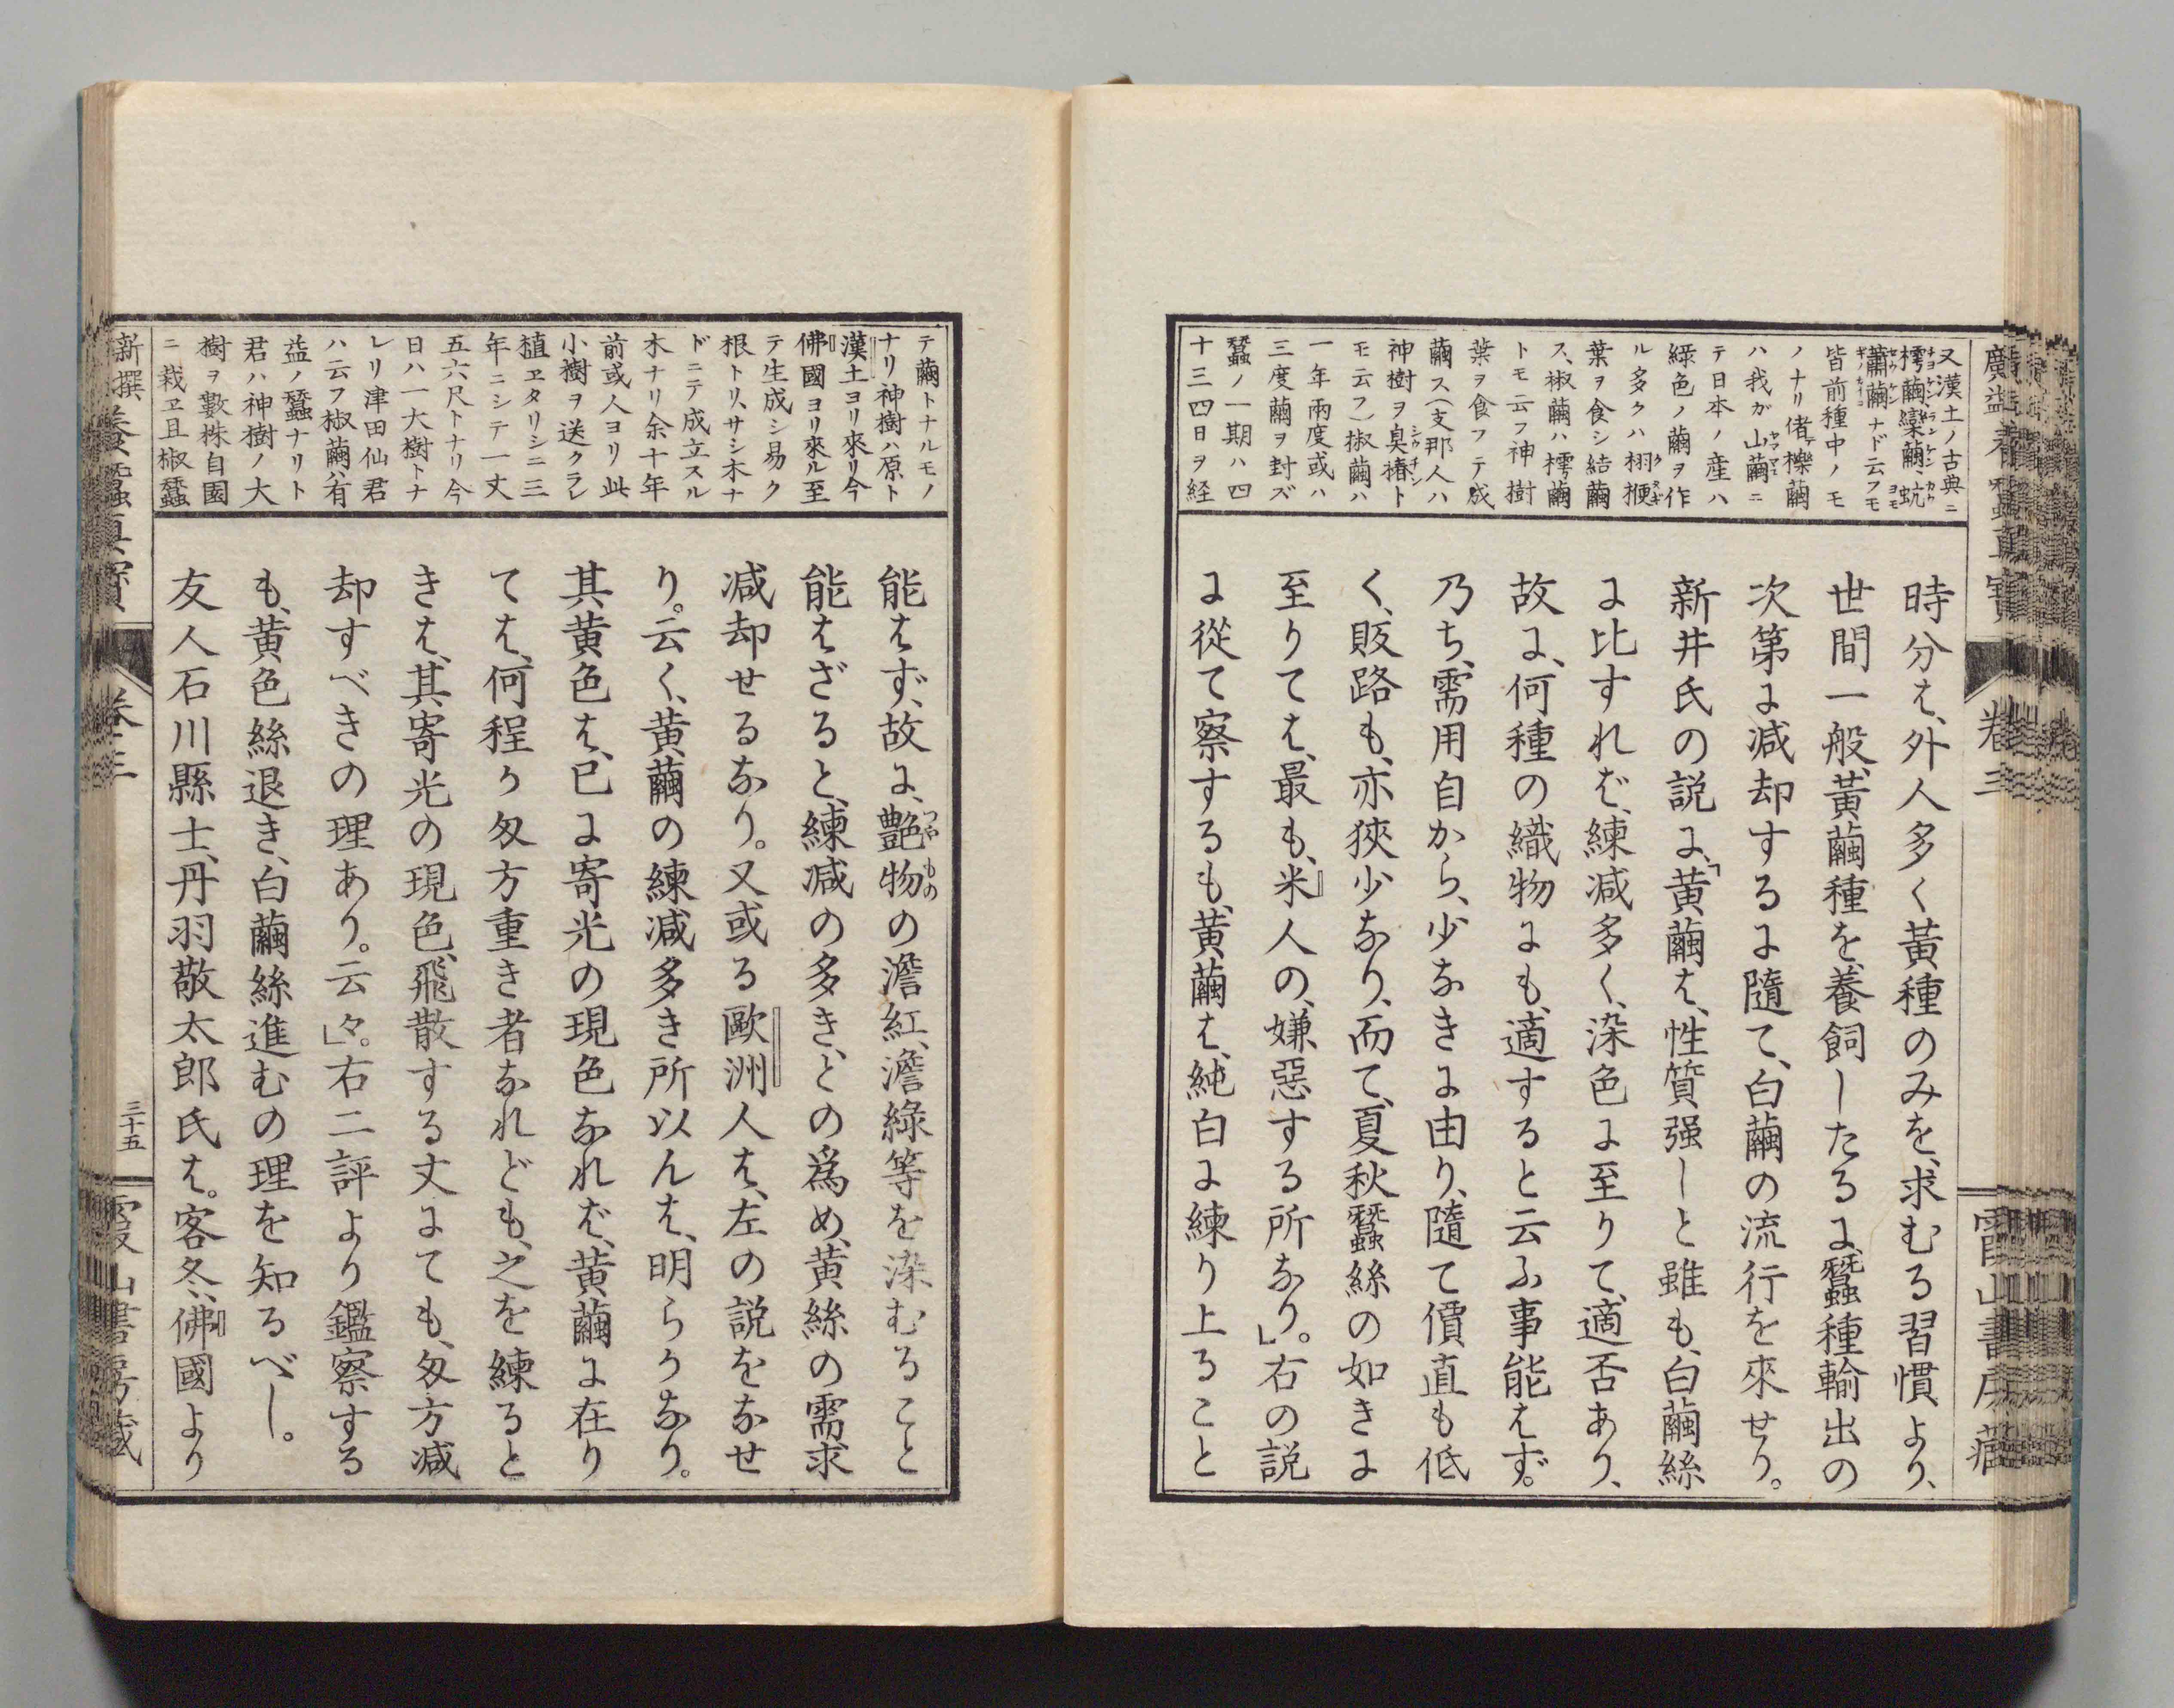 又漢土ノ古典ニ
樗繭欒繭、蚢
蕭繭ナド云フモ
皆前種中ノモ
ノナリ偖櫟繭
ハ我ガ山繭ニ
テ日本ノ産ハ
綠色ノ繭ヲ作
ル多クハ栩
葉ヲ食シ結繭
ス、椒繭ハ樗繭
トモ云フ神樹
葉ヲ食フテ成
繭ス(支那人ハ
神樹ヲ臭椿ト
モ云フ)椒繭ハ
一年兩度或ハ
三度繭ヲ封ズ
蠶ノ一期ハ四
十三四日ヲ経
時分は、外人多く黃種のみを、求むる習慣より、
世間一般、黃繭種を、養飼したるに、蠶種輸出の
次第に減却するに隨て、白繭の流行を來せり。
新井氏の説に、「黄繭は、性質强しと雖も、白繭絲
に比すれば、練減多く、染色に至りて、適否あり、
故に、何種の織物にも、適すると云ふ事能はず。
乃ち、需用自から、少なきに由り、隨て價直も低
く、販路も、亦狹少なり、而て、夏秋蠶絲の如きに
至りては、最も、米人の、嫌惡する所なり。」右の説
に從て察するも、黄繭は、純白に練り上ること
卷三
テ繭トナルモノ
ナリ神樹ハ原ト
漢土ヨリ來リ今
佛國ヨリ來ル至
テ生成シ易ク
根トリ、サシ木ナ
ドニテ成立スル
木ナリ余十年
前或人ヨリ此
小樹ヲ送クラレ
植ヱタリシニ三
年ニシテ一丈
五六尺トナリ今
日ハ一大樹トナ
レリ津田仙君
ハ云フ椒繭ハ有
益ノ蠶ナリト
君ハ神樹ノ大
樹ヲ數株自園
ニ栽ヱ且椒蠶
能はず、故に、艶物の澹紅、澹綠等を染むること
能はざると、練減の多き、との爲め、黄絲の需求
減却せるなり。又或る歐洲人は、左の説をなせ
り。云く、黄繭の練減多き所以んは、明らかなり。
其黄色は、已に寄光の現色なれば、黄繭に在り
ては、何程か匁方重き者なれども、之を練ると
きは、其寄光の現色、飛散する丈にても、匁方減
却すべきの理あり。云々。」右二評より鑑察する
も、黄色絲退き、白繭絲進むの理を知るべし。
友人石川縣士、丹羽敬太郎氏は。客冬、佛國より
卷三
三十五